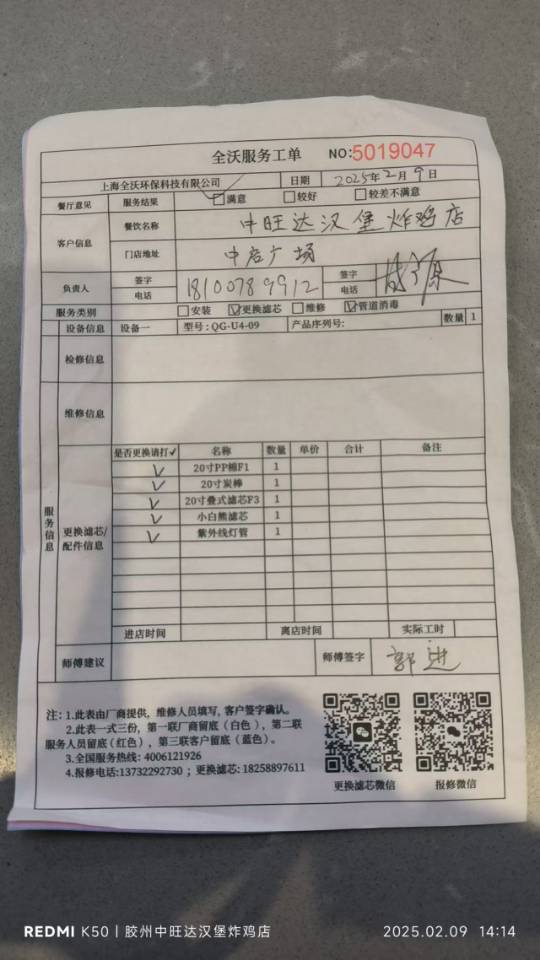 全沃服务工单 NO:5019047
上海全沃环保科技有限公司 日期 2025年2月9日
餐厅意见 服务结果 满意 较好 较差不满意
客户信息 餐饮名称 中旺达汉堡炸鸡店
门店地址 中启广场
负责人 签字 签字
电话 18100789912 电话
服务类别 安装 更换滤芯 维修 管道消毒
设备信息 设备一 型号:QG-U4-09 产品序列号: 数量 1
检修信息
维修信息
服务信息
更换滤芯/配件信息
是否更换请打✓ 名称 数量 单价 合计 备注
✓ 20寸PP棉F1 1
✓ 20寸炭棒 1
✓ 20寸叠式滤芯F3 1
✓ 小白熊滤芯 1
✓ 紫外线灯管 1
进店时间 离店时间 实际工时
师傅建议 师傅签字 郭进
注:1.此表由厂商提供,维修人员填写,客户签字确认。
2.此表一式三份,第一联厂商留底(白色)、第二联
服务人员留底(红色)、第三联客户留底(蓝色)。
3.全国服务热线:4006121926
4.报修电话:13732292730 ; 更换滤芯:18258897611
更换滤芯微信 报修微信
REDMI K50 | 胶州中旺达汉堡炸鸡店 2025.02.09 14:14